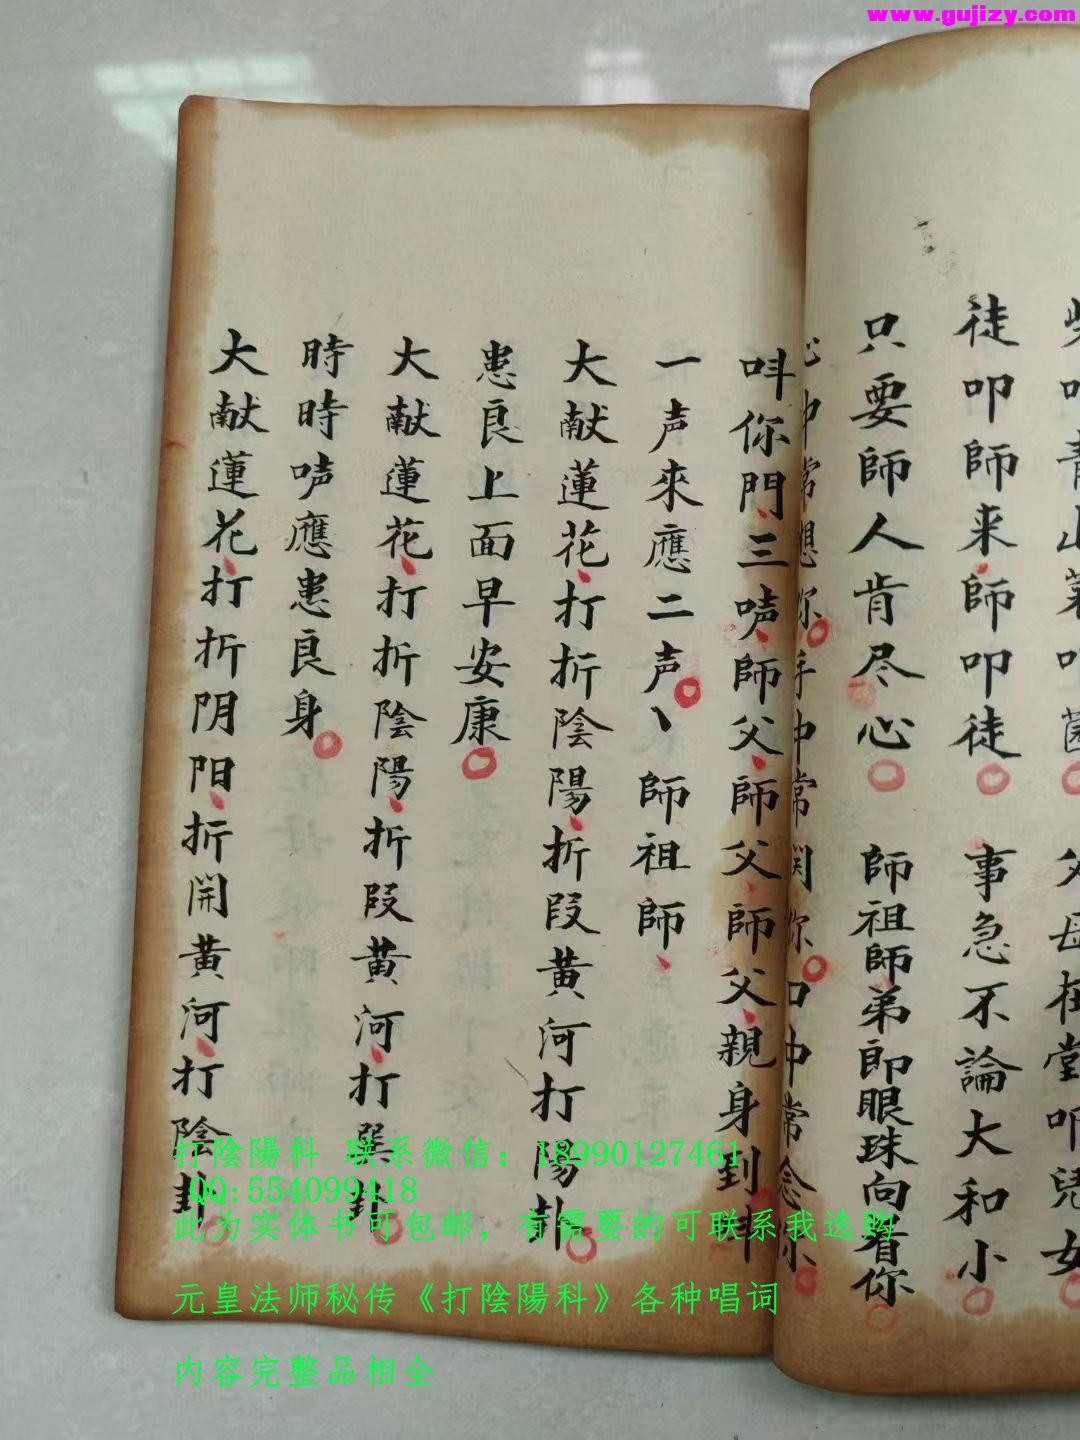 www.gujizy.com
徒叩師来師叩徒 事急不論大和小
只要師人肯尽心 師祖師弟郎眼珠向看你
心中常想你手中常関你口中常念你
呌你門三唠師父師父師父親身到
一声來應二声、師祖師
大献蓮花打折陰陽折段黄河打陽卦
患良上面早安康
大献蓮花打折陰陽折段黄河打巽卦
時時唠應患良身
大献蓮花打折阴阳折開黄河打陰卦
打陰陽科 联系微信：18990127461
QQ:554099418
此为实体书可包邮，有需要的可联系我选购
元皇法师秘传《打陰陽科》各种唱词
内容完整品相全